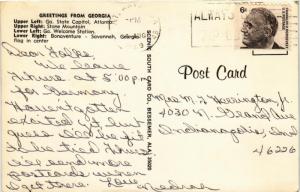 GREETINGS FROM GEORGIA
Upper Left: Ga. State Capitol, Atlanta
Upper Right: Stone Mountain
Lower Left: Ga. Welcome Station.
Lower Right: Bonaventure - Savannah, Georgia
flag in center
PM
ALWAYS
6c
SCENIC SOUTH CARD CO., BESSEMER, ALA. 35020
Post Card
Dear Folks
We leave
Thurs at 5:00 p.m.
for Germany.
Haven't gotten
excited yet but
guess will be glad
to be
Thurs
I'll send more
postcards when
I get there. Love,
Mr. M. J. Harrington Jr.
4030 N.
Indianapolis, Ind
46226